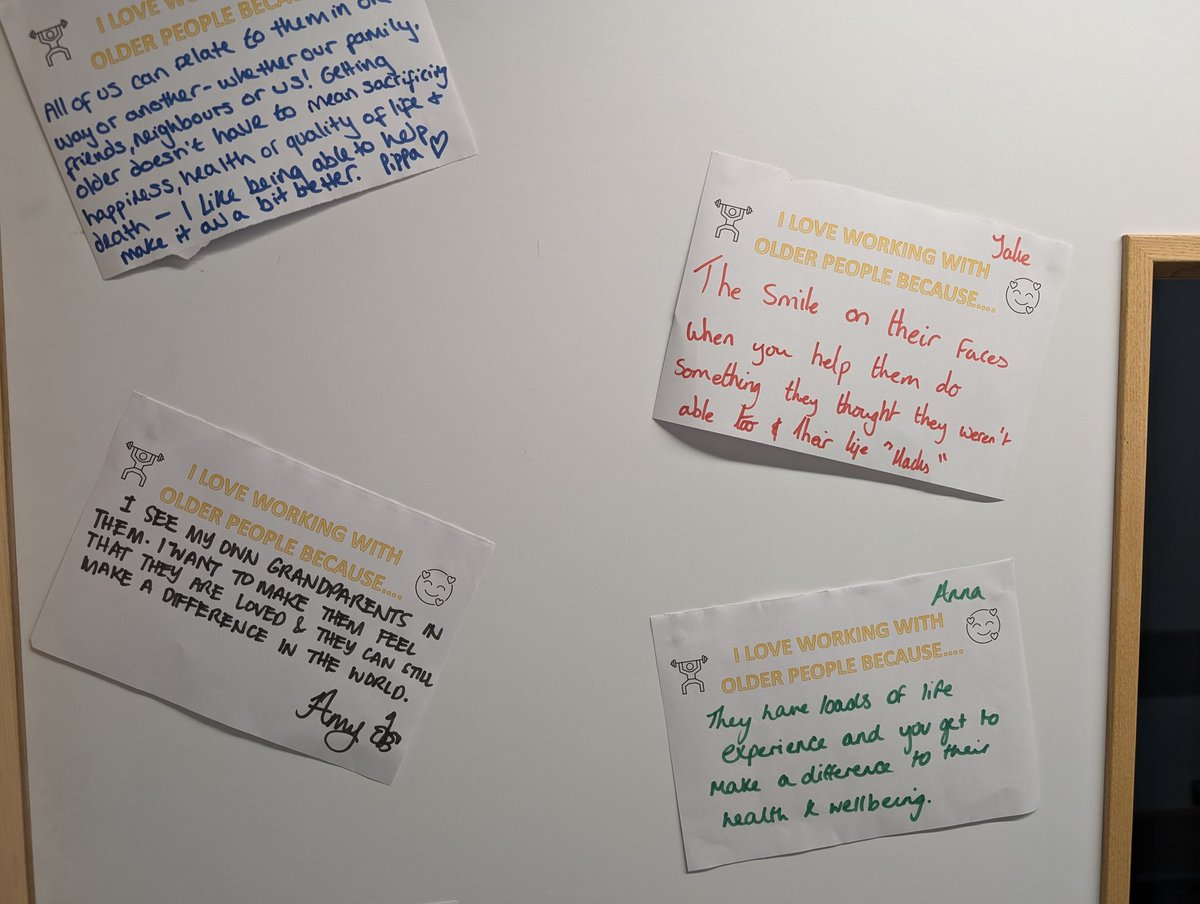 I LOVE WORKING
OLDER PEOPLE BECAUSE
All of us can relate to them in one
way or another - whether our family,
friends, neighbours or us! Getting
older doesn't have to mean sacrificing
happiness, health or quality of life &
death - I like being able to help
make it all a bit better. Pippa ♡
Jake
I LOVE WORKING WITH
OLDER PEOPLE BECAUSE....
The Smile on their Faces
when you help them do
something they thought they weren't
able too & their life "Hacks"
I LOVE WORKING WITH
OLDER PEOPLE BECAUSE....
I SEE MY OWN GRANDPARENTS IN
THEM. I WANT TO MAKE THEM FEEL
THAT THEY ARE LOVED & THEY CAN STILL
MAKE A DIFFERENCE IN THE WORLD.
Amy
Anna
I LOVE WORKING WITH
OLDER PEOPLE BECAUSE....
They have loads of life
experience and you get to
make a difference to their
health & wellbeing.